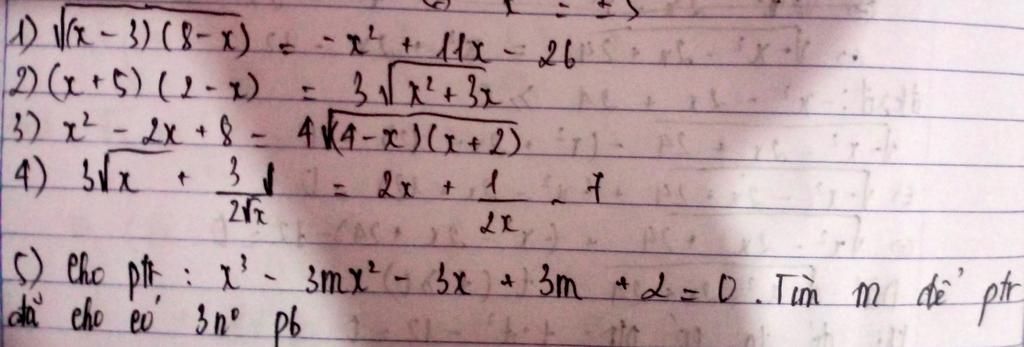 1) √(x - 3)(8 - x) = -x² + 11x - 26
2) (x + 5)(2 - x) = 3√x² + 3x
3) x² - 2x + 8 = 4√(4 - x)(x + 2)
4) 3√x + 3/2√x = 2x + 1/2x - 7
5) Cho ptr : x³ - 3mx² - 3x + 3m + 2 = 0. Tìm m để ptr
đã cho có 3n⁰ pb